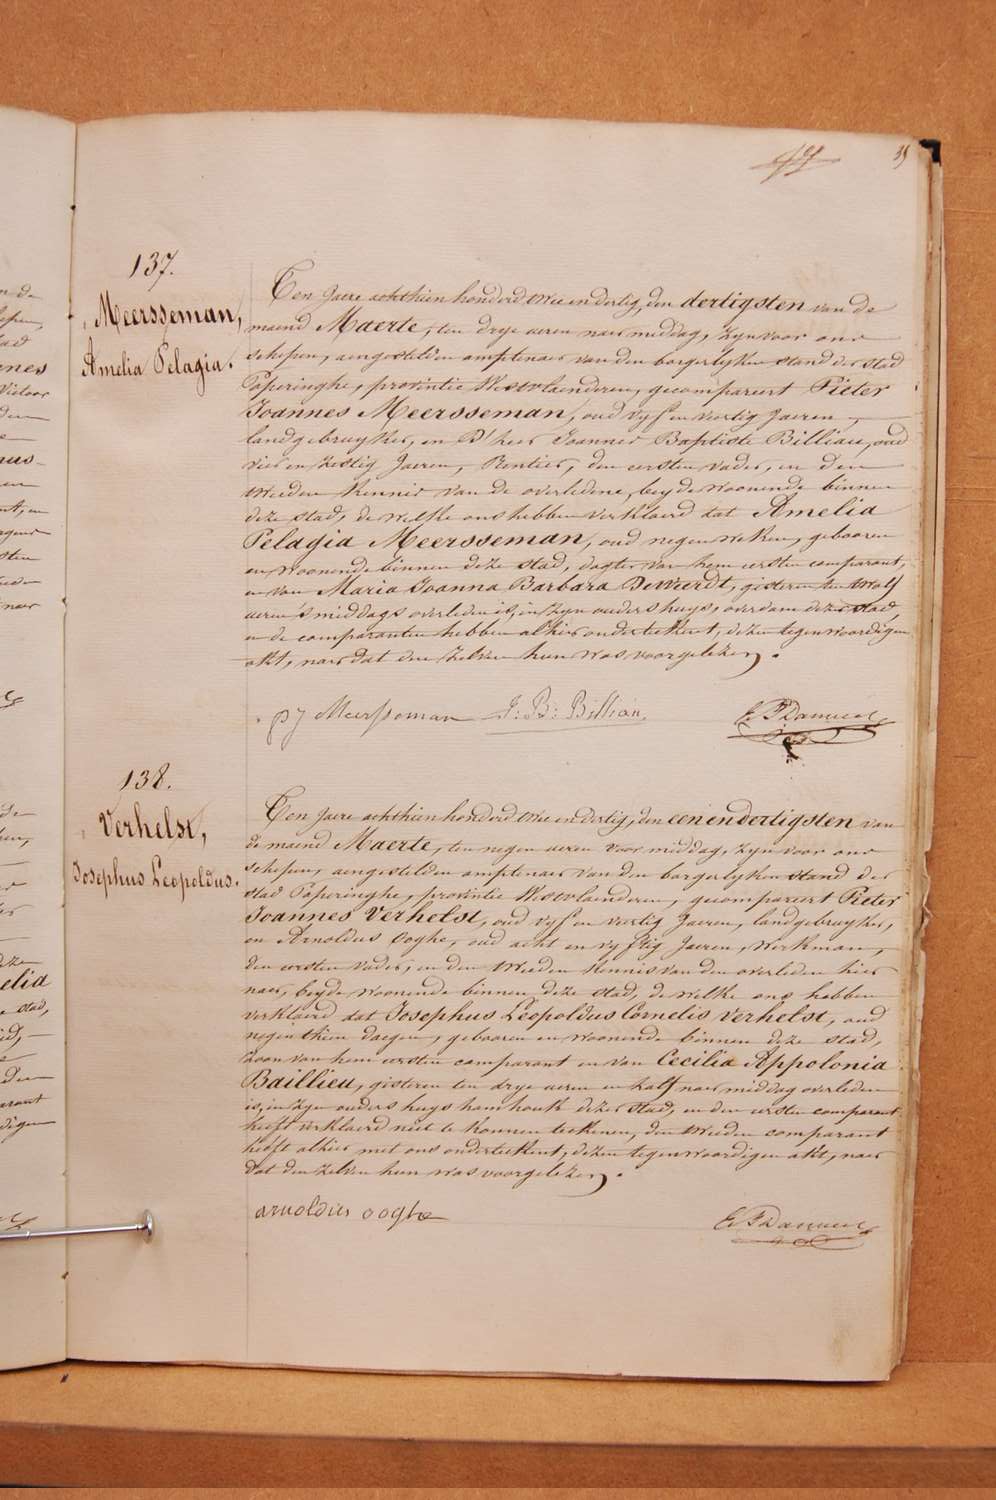 35
137.
Meersseman,
Amelia Pelagia.
Ten Jaere achthien honderd twee en dertig, den dertigsten van de
maend Maerte, ten drye ueren naer middag, zyn voor ons
schepen, aengestelden amptenaer van den borgerlyken stand der stad
Poperinghe, provintie Westvlaenderen, gecompareert Pieter
Joannes Meersseman, oud vyf en veertig Jaeren,
landgebruyker, en D'heer Joannes Baptiste Billiau, oud
vier en zestig Jaeren, Rentier, den eersten vader, en den
tweeden kennis van de overledene, beyde woonende binnen
deze stad, de welke ons hebben verklaerd dat Amelia
Pelagia Meersseman, oud negen weken, gebooren
en woonende binnen deze stad, dogter van hem eersten comparant,
en van Maria Joanna Barbara Deweerdt, gisteren ten twalf
ueren 's middags overleden is, in zyn ouders huys, overdam dezer stad,
en de comparanten hebben alhier onderteekent, dezen tegenwoordigen
akt, naer dat den zelven hun was voorgelezen.
pj Meersseman J: B: Billiau
138.
Verhelst,
Josephus Leopoldus.
Ten Jaere achthien honderd twee en dertig, den een en dertigsten van
de maend Maerte, ten negen ueren voor middag, zyn voor ons
schepen, aengestelden amptenaer van den borgerlyken stand der
stad Poperinghe, provintie Westvlaenderen, gecompareert Pieter
Joannes Verhelst, oud vyf en veertig Jaeren, landgebruyker,
en Arnoldus Ooghe, oud acht en vyftig Jaeren, Werkman,
den eersten vader, en den tweeden kennis van den overleden hier
naer, beyde woonende binnen deze stad, de welke ons hebben
verklaerd dat Josephus Leopoldus Cornelis Verhelst, oud
negenthien daegen, gebooren en woonende binnen deze stad,
zoon van hem eersten comparant en van Cecilia Appolonia
Baillieu, gisteren ten drye ueren en half naer middag overleden
is, in zyn ouders huys hamhouk dezer stad, en den eersten comparant
heeft verklaerd niet te konnen teekenen, den tweeden comparant
heeft alhier met ons onderteekent, dezen tegenwoordigen akt, naer
dat den zelven hun was voorgelezen.
arnoldus ooghe